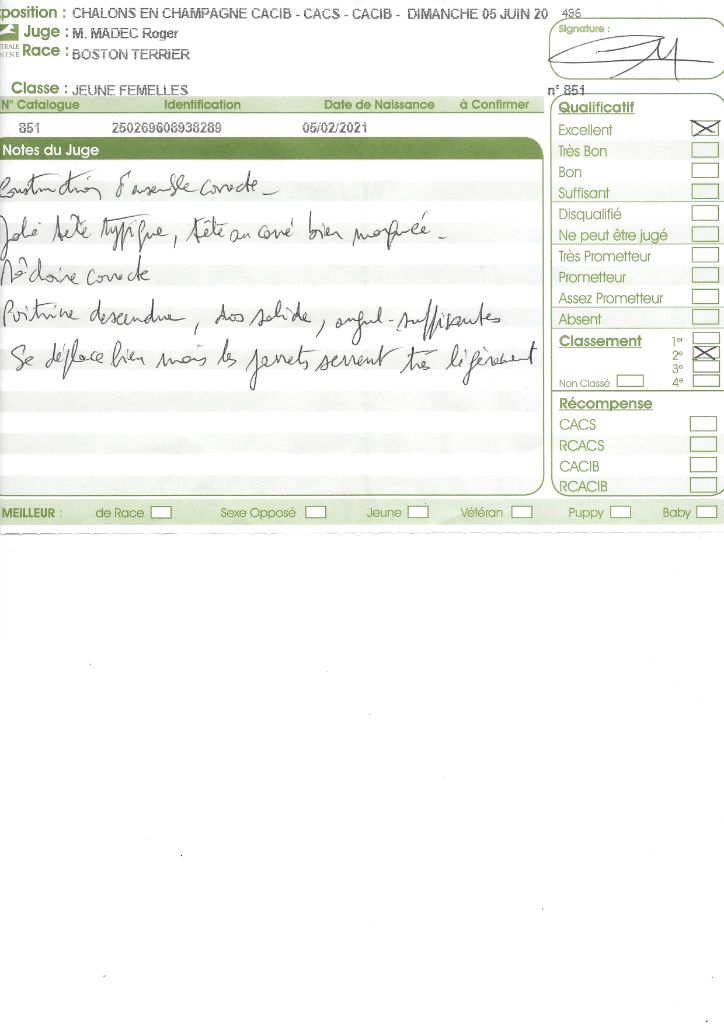 position : CHALONS EN CHAMPAGNE CACIB - CACS - CACIB - DIMANCHE 05 JUIN 20 496
Juge : M. MADEC Roger
Signature :
TRALE
NINE
Race : BOSTON TERRIER
Classe : JEUNE FEMELLES
n° 851
N° Catalogue Identification Date de Naissance à Confirmer
851 250269608938289 05/02/2021
Notes du Juge
Construction d'ensemble correcte -
Jolie tête typique, tête au carré bien marquée -
Mâchoire correcte
Poitrine descendue, dos solide, angul-suffisantes
Se déplace bien mais les jarrets serrent très légèrement
Qualificatif
Excellent
Très Bon
Bon
Suffisant
Disqualifié
Ne peut être jugé
Très Prometteur
Prometteur
Assez Prometteur
Absent
Classement 1er
2e
3e
Non Classé 4e
Récompense
CACS
RCACS
CACIB
RCACIB
MEILLEUR : de Race Sexe Opposé Jeune Vétéran Puppy Baby